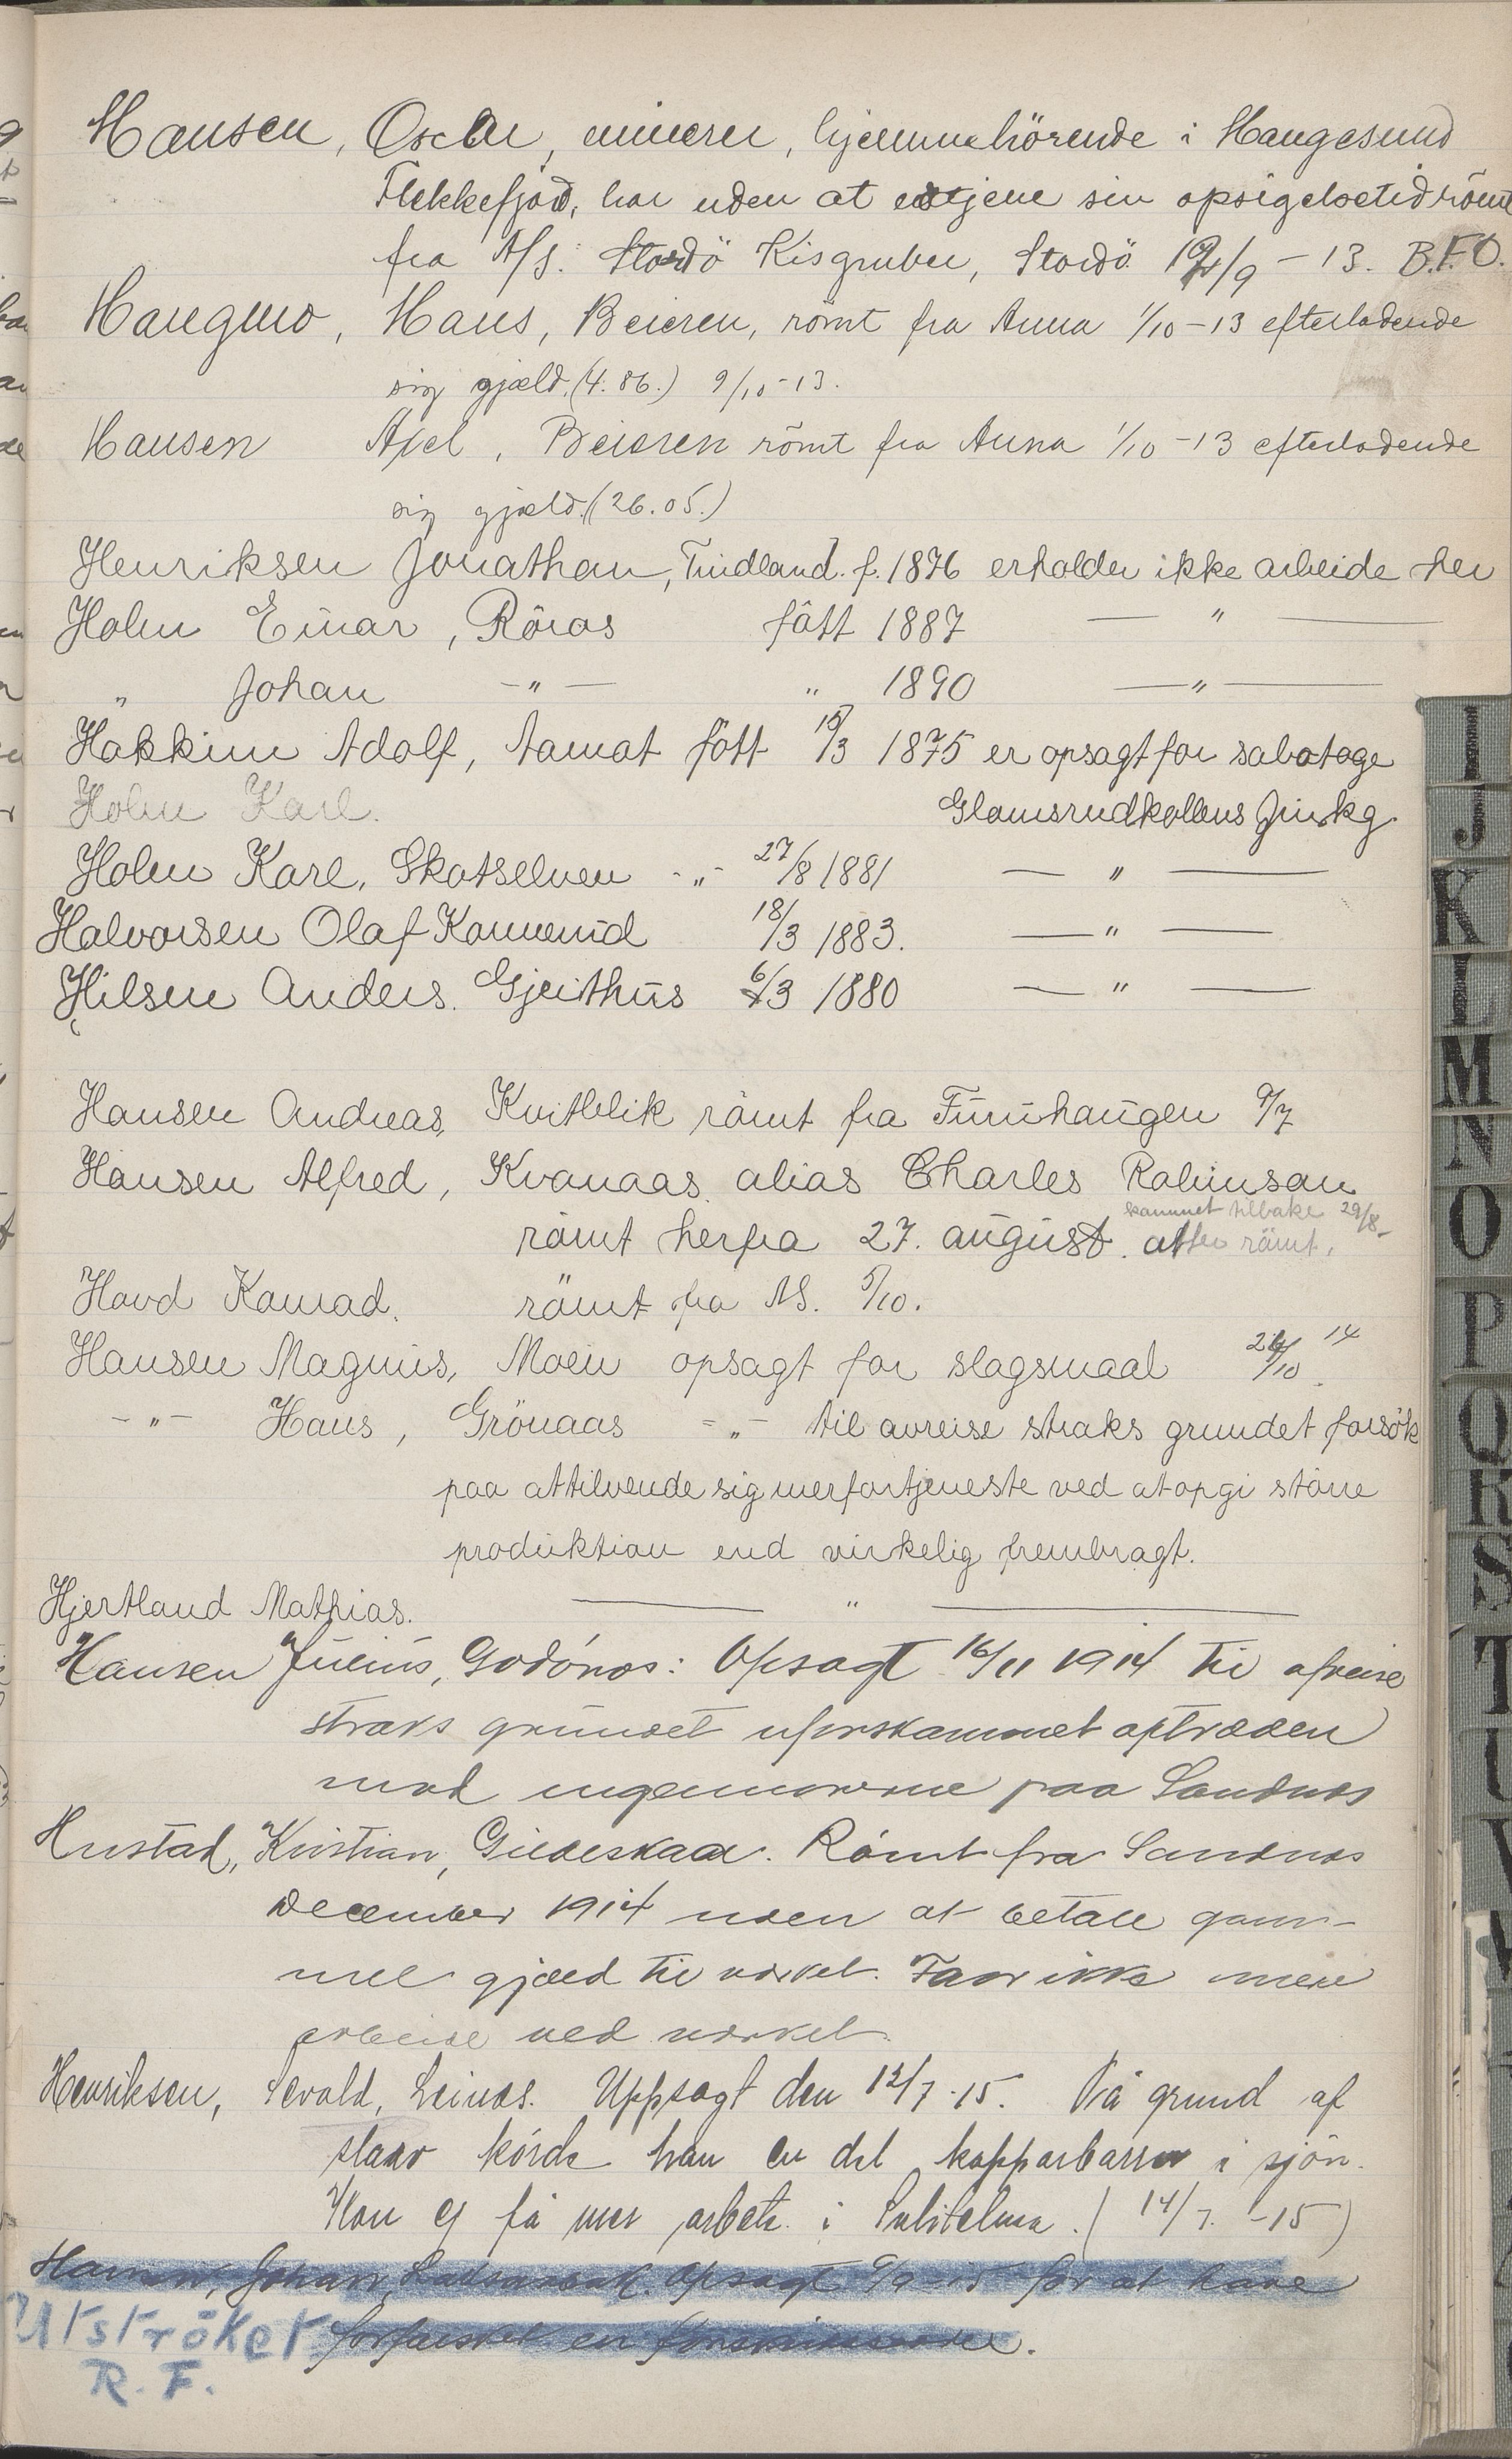 Hansen, Oscar, minerer, hjemmehörende i Haugesund
Flekkefjord, har uden at udtjene sin opsigelsetid römt
fra A/S. Stordö Kisgruber, Stordö /9 - 13. B.F.O.
Haugmo, Hans, Beieren, römt fra Anna 1/10 - 13 efterladende
sig gjæld. (4.86.) 9/10-13.
Hansen Axel, Beieren römt fra Anna 1/10 - 13 efterladende
sig gjæld. (26.05.)
Henriksen Jonathan, Findland. f. 1876 erholder ikke arbeide her
Holm Einar, Röros fött 1887 — " —
" Johan — " — " 1890 — " —
Hakkinn Adolf, Aamot fött 15/3 1875 er opsagt for sabotage
Holm Karl. Glamsrudkollens Zinkg.
Holm Karl, Skotselven - " - 27/8 1881 — " —
Halvorsen Olaf Komnerud 18/3 1883. — " —
Hilsen Anders. Gjeithus 6/3 1880 — " —
Hansen Andreas, Kvitblik römt fra Furuhaugen 9/7
Hansen Alfred, Kvanaas alias Charles Robinson
kommet tilbake 29/8-
römt herfra 27. august. atter römt.
Hovd Konrad. römt fra N.S. 5/10.
Hansen Magnus, Moen opsagt for slagsmaal 24/10 14
- " - Hans, Grönaas - " - til avreise straks grundet forsök
paa at tilvende sig merfortjeneste ved at opgi större
produktion end virkelig frembragt.
Hjertland Mathias. — " —
Hansen Julius, Godönes: Opsagt 16/11 1914 til afreise
straks grundet uforskammet optræden
mod ingeniörerne paa Sandnes
Hustad, Kristian, Gildeskaal. Römt fra Sandnes
December 1914 uden at betale gam-
mel gjæld til verket. Faar ikke mere
arbeide ved verket.
Henriksen, Sevald, Leines. Uppsagt den 12/7-15. På grund af
slarv körde han en del kopparbarrer i sjön.
Kan ej få mer arbete i Sulitelma. (14/7.-15)
Johan, Opsagt for at have
forfalsket en
Utströket
R.F.